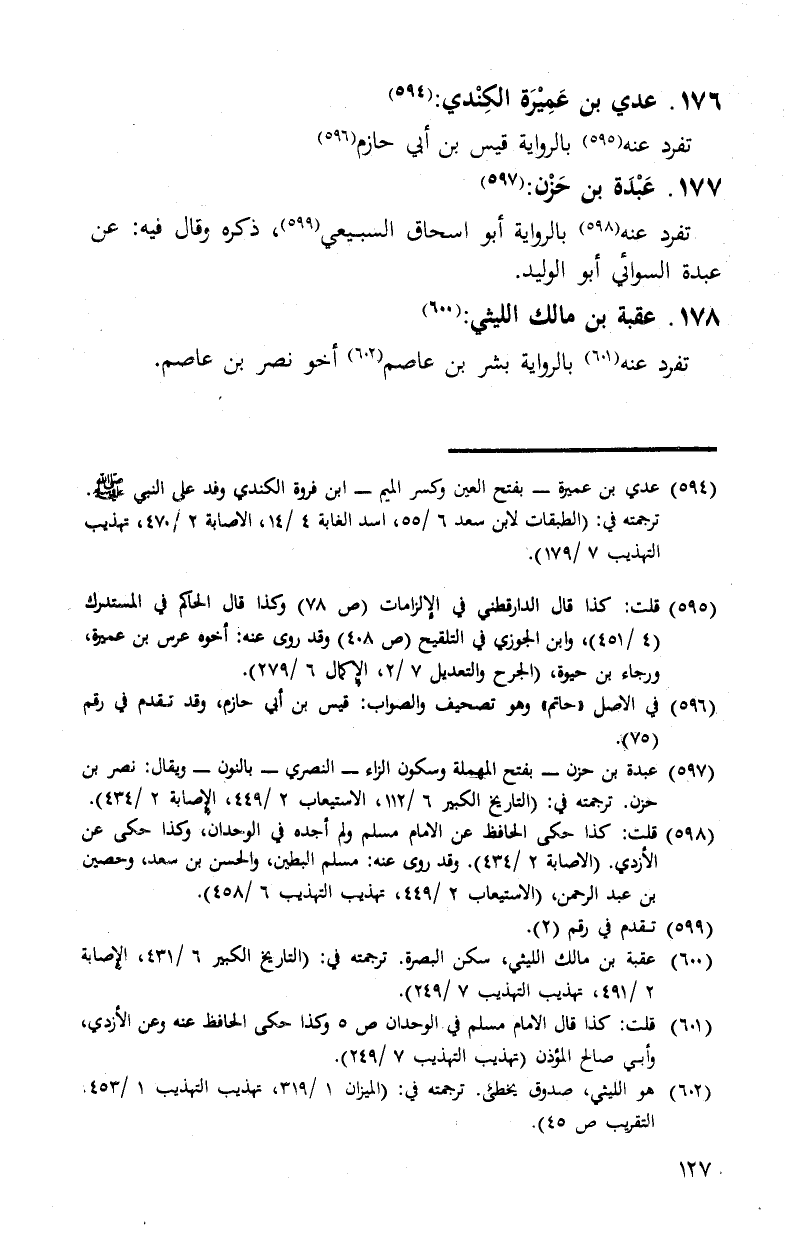 ١٧٦. عدي بن عَمِيْرَة الكِنْدي:(٥٩٤)
تفرد عنه(٥٩٥) بالرواية قيس بن أبي حازم(٥٩٦)
١٧٧. عَبْدَة بن حَزْن:(٥٩٧)
تفرد عنه(٥٩٨) بالرواية أبو اسحاق السبيعي(٥٩٩)، ذكره وقال فيه: عن
عبدة السوائي أبو الوليد.
١٧٨. عقبة بن مالك الليثي:(٦٠٠)
تفرد عنه(٦٠١) بالرواية بشر بن عاصم(٦٠٢) أخو نصر بن عاصم.
(٥٩٤) عدي بن عميرة ــ بفتح العين وكسر الميم ــ ابن فروة الكندي وفد على النبي ﷺ.
ترجمته في: (الطبقات لابن سعد ٦ /٥٥، اسد الغابة ٤ /١٤، الاصابة ٢ /٤٧٠، تهذيب
التهذيب ٧ /١٧٩).
(٥٩٥) قلت: كذا قال الدارقطني في الإلزامات (ص ٧٨) وكذا قال الحاكم في المستدرك
(٤ /٤٥١)، وابن الجوزي في التلقيح (ص ٤٠٨) وقد روى عنه: أخوه عرس بن عميرة،
ورجاء بن حيوة، (الجرح والتعديل ٧ /٢، الإكمال ٦ /٢٧٩).
(٥٩٦) في الاصل «حاتم» وهو تصحيف والصواب: قيس بن أبي حازم، وقد تقدم في رقم
(٧٥).
(٥٩٧) عبدة بن حزن ــ بفتح المهملة وسكون الزاء ــ النصري ــ بالنون ــ ويقال: نصر بن
حزن. ترجمته في: (التاريخ الكبير ٦ /١١٢، الاستيعاب ٢ /٤٤٩، الإصابة ٢ /٤٣٤).
(٥٩٨) قلت: كذا حكى الحافظ عن الامام مسلم ولم أجده في الوحدان، وكذا حكى عن
الأزدي. (الاصابة ٢ /٤٣٤). وقد روى عنه: مسلم البطين، والحسن بن سعد، وحصين
بن عبد الرحمن، (الاستيعاب ٢ /٤٤٩، تهذيب التهذيب ٦ /٤٥٨).
(٥٩٩) تقدم في رقم (٢).
(٦٠٠) عقبة بن مالك الليثي، سكن البصرة. ترجمته في: (التاريخ الكبير ٦ /٤٣١، الإصابة
٢ /٤٩١، تهذيب التهذيب ٧ /٢٤٩).
(٦٠١) قلت: كذا قال الامام مسلم في الوحدان ص ٥ وكذا حكى الحافظ عنه وعن الأزدي،
وأبي صالح المؤذن (تهذيب التهذيب ٧ /٢٤٩).
(٦٠٢) هو الليثي، صدوق يخطئ. ترجمته في: (الميزان ١ /٣١٩، تهذيب التهذيب ١ /٤٥٣.
التقريب ص ٤٥).
١٢٧